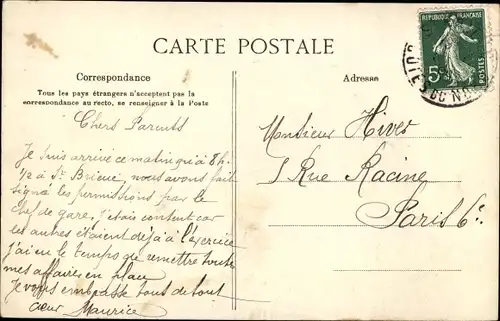 CARTE POSTALE
Correspondance
Tous les pays étrangers n'acceptent pas la
correspondance au recto, se renseigner à la Poste
Adresse
REPUBLIQUE FRANÇAISE
5c
POSTES
CÔTES DU N
Chers Parents
Je suis arrivé ce matin qu'à 8h
1/2 à St. Brieuc, nous avons fait
signé les permissions par le
chef de gare, j'étais content car
les autres étaient déjà à l'exercice
j'ai eu le temps de remettre toute
mes affaires en place
Je vous embrasse tous de tout
cœur Maurice
Monsieur Hives
Rue Racine
Paris 6e